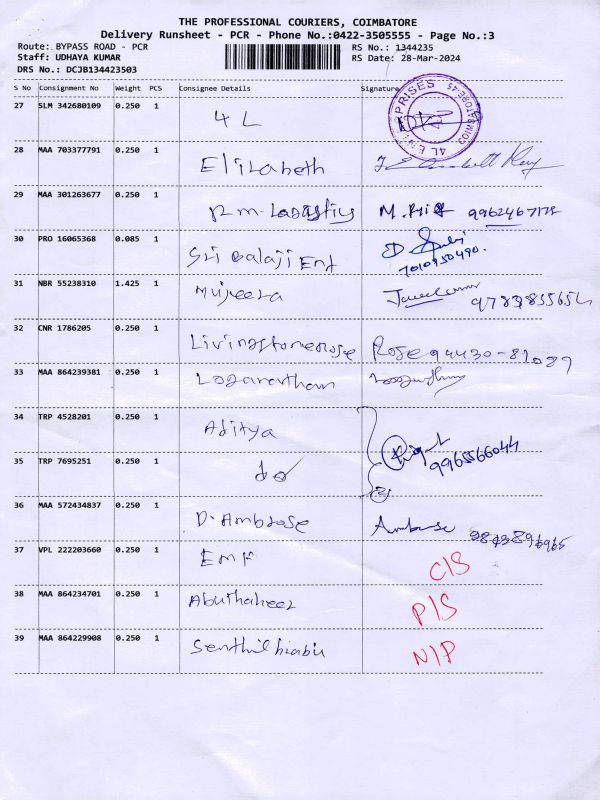 THE PROFESSIONAL COURIERS, COIMBATORE
Delivery Runsheet - PCR - Phone No.:0422-3505555 - Page No.:3
Route: BYPASS ROAD - PCR RS No.: 1344235
Staff: UDHAYA KUMAR RS Date: 28-Mar-2024
DRS No.: DCJB134423503
S No Consignment No Weight PCS Consignee Details Signature
27 SLM 342680109 0.250 1 4 L
28 MAA 703377791 0.250 1 Elizabeth
29 MAA 301263677 0.250 1
30 PRO 16065368 0.085 1 Sri Balaji Ent 7010950490.
31 NBR 55238310 1.425 1 Mujeera
32 CNR 1786205 0.250 1 Livingstonerose Rose
33 MAA 864239381 0.250 1
34 TRP 4528201 0.250 1 Aditya
35 TRP 7695251 0.250 1 do 9965566044
36 MAA 572434837 0.250 1 D. Ambrose Ambrose
37 VPL 222203660 0.250 1 EMF C/S
38 MAA 864234701 0.250 1 Abuthaheer P/S
39 MAA 864229908 0.250 1 Senthilbabu N/P